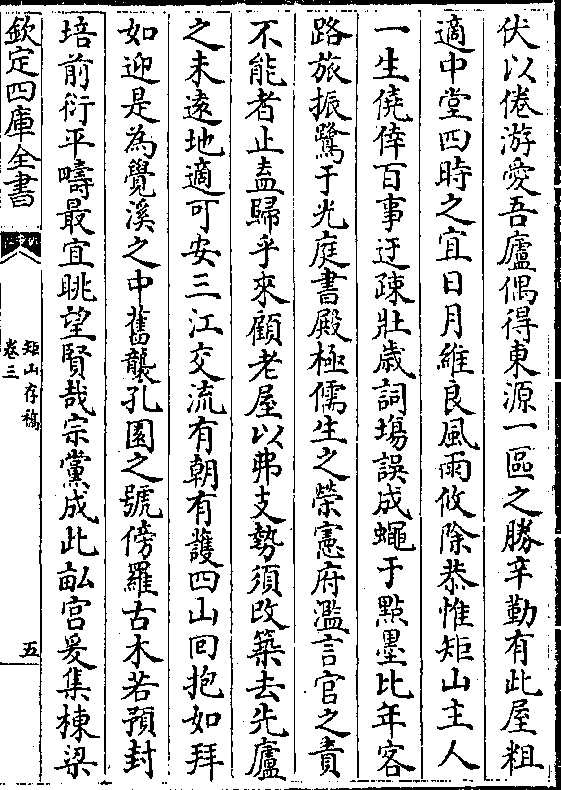 伏以倦游愛吾廬偶得東源一區之勝辛勤有此屋粗
適中堂四時之宜日月維良風雨攸除恭惟矩山主人
一生僥倖百事迂疎壯歳詞塲誤成蠅于點墨比年客
路旅振鷺于光庭書殿極儒生之榮憲府濫言官之責
不能者止盍歸乎來顧老屋以弗支勢須改築去先廬
之未逺地適可安三江交流有朝有䕶四山囘抱如拜
如迎是為覺溪之中舊襲孔園之號傍羅古木若預封
培前衍平疇最宜眺望賢哉宗黨成此畆宮爰集棟梁
欽定四庫全書
矩山存稿
卷三
五